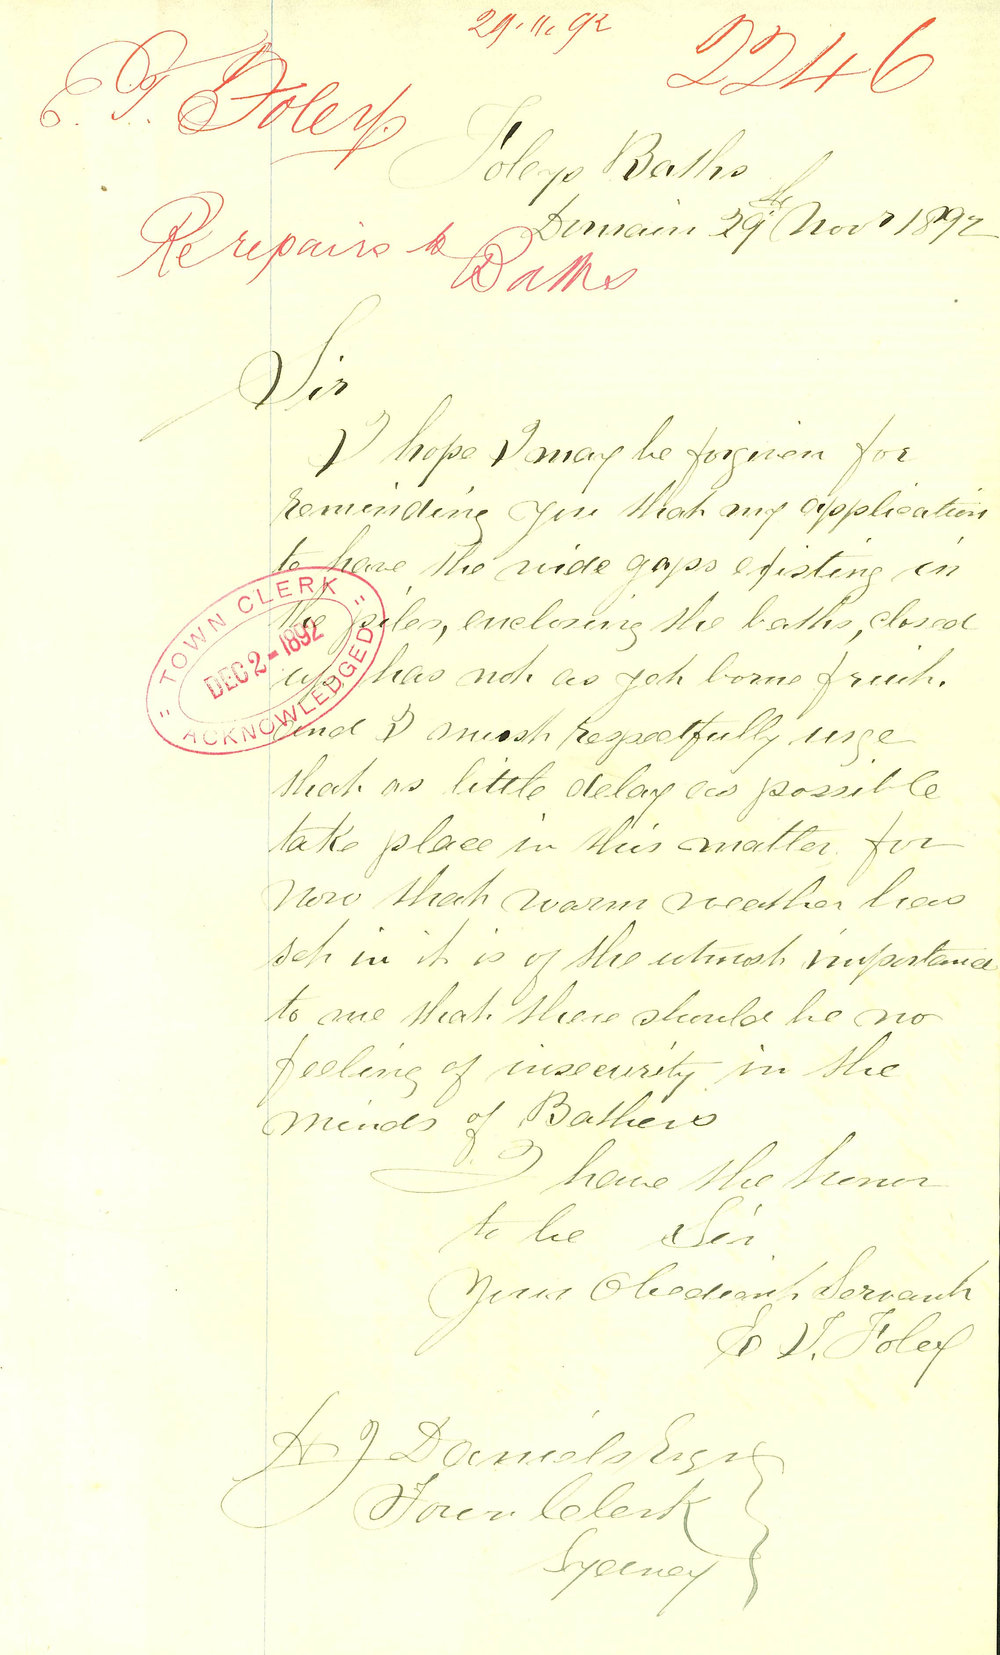 29.11.92
2246
E. T. Foley.
Foleys Baths
Domain 29th Novr 1892
Re repairs to
Baths
Sir
I hope I may be forgiven for
reminding you that my application
to have the wide gaps existing in
the piles, enclosing the baths, closed
up has not as yet borne fruit.
and I must respectfully urge
that as little delay as possible
take place in this matter for
now that warm weather has
set in it is of the utmost importance
to me that there should be no
feeling of insecurity in the
minds of Bathers
I have the honor
to be Sir
Your Obedient Servant
E. T. Foley
H J Daniels Esqr
Town Clerk
Sydney
" TOWN CLERK "
DEC 2 - 1892
ACKNOWLEDGED